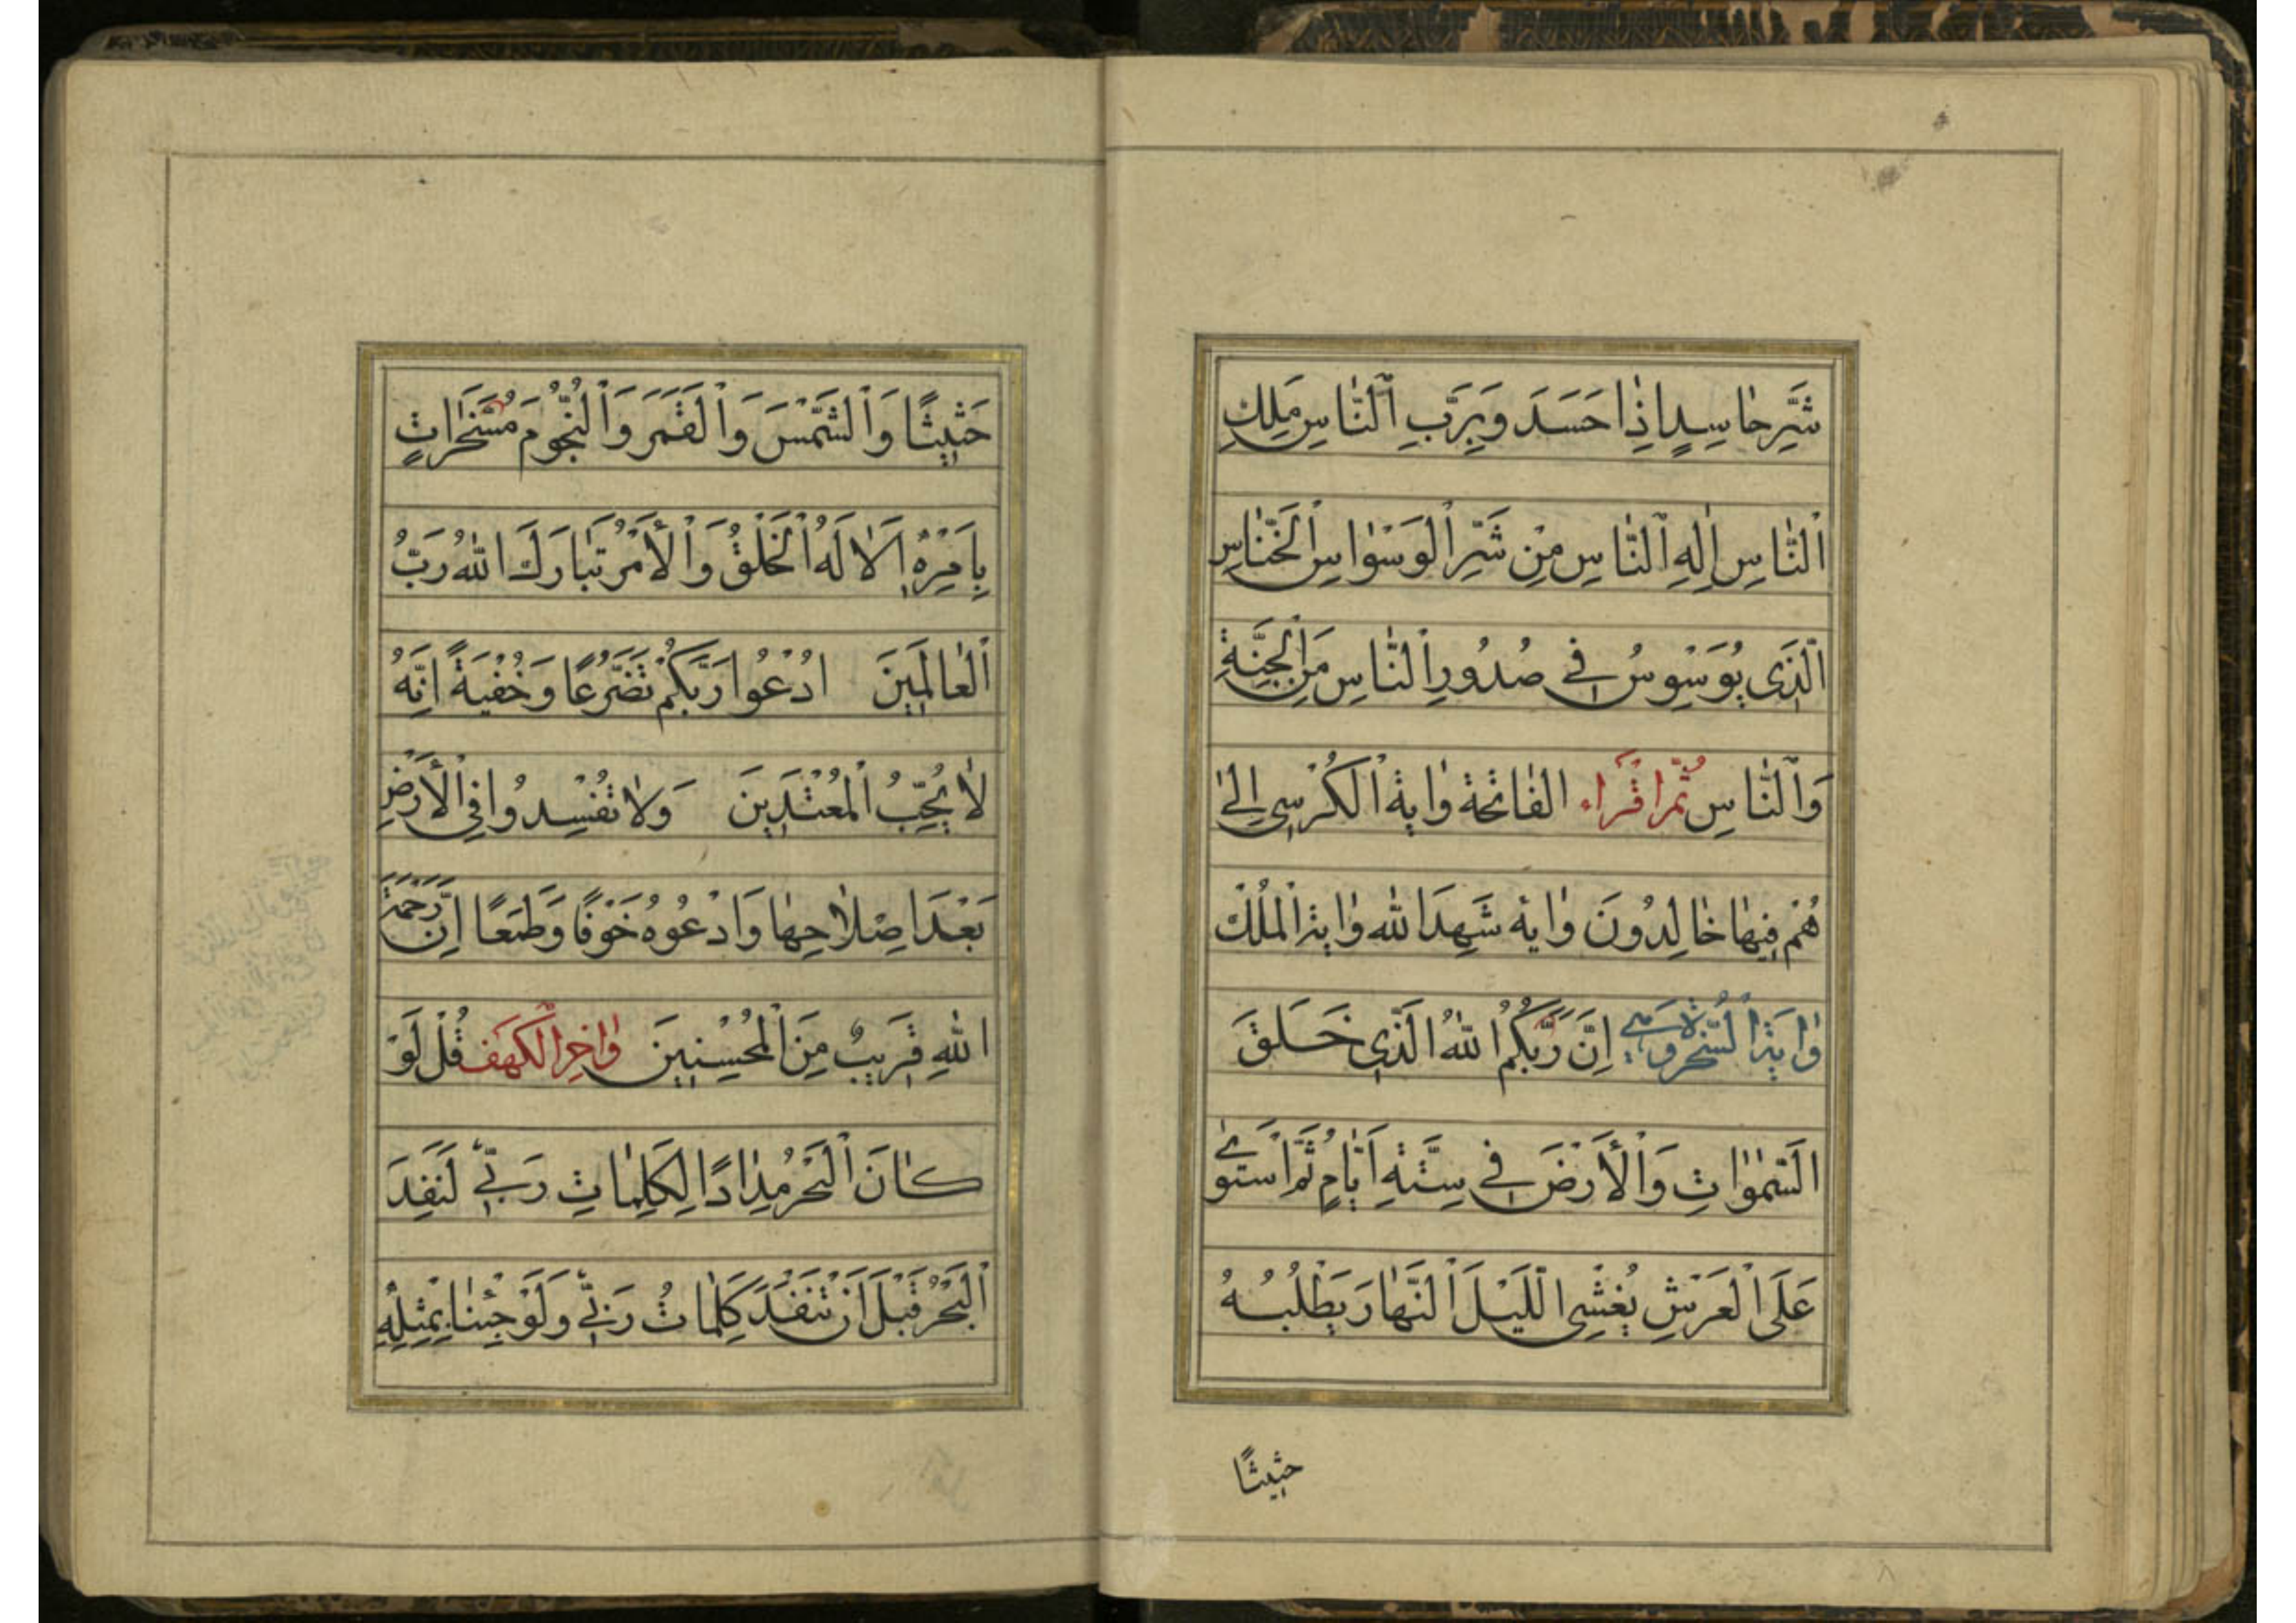 شَرِّ حٰاسِدٍ اِذٰا حَسَدَ وَبِرَبِّ ٱلنّٰاسِ مَلِكِ
ٱلنّٰاسِ اِلٰهِ ٱلنّٰاسِ مِنْ شَرِّ ٱلوَسْوٰاسِ ٱلْخَنّٰاسِ
ٱلَّذِى يُوَسْوِسُ فِي صُدُورِ ٱلنّٰاسِ مِنَ ٱلْجِنَّةِ
وَٱلنّٰاسِ ثُمَّ اقْرَاء الفٰاتحة وٰاية ٱلكُرْسِي اِلىٰ
هُمْ فِيهٰا خٰالِدُونَ وٰاية شَهِدَ الله وٰاية ٱلمُلْك
وٰايَةَ ٱلسُّخْرَة وَهِيَ اِنَّ رَبَّكُمُ اللهُ الَّذِي خَلَقَ
السَّمٰوٰاتِ وَٱلْأَرْضَ فِي سِتَّةِ اَيّٰامٍ ثُمَّ اسْتَوىٰ
عَلَى ٱلْعَرْشِ يُغْشِي اللَّيْلَ ٱلنَّهٰارَ يَطْلُبُهُ
حثيثًا
حَثِيثًا وَٱلشَّمْسَ وَٱلْقَمَرَ وَٱلنُّجُومَ مُسَخَّرٰاتٍ
بِاَمْرِهِ اَلٰا لَهُ ٱلْخَلْقُ وَٱلْأَمْرُ تَبٰارَكَ اللهُ رَبُّ
ٱلْعٰالَمِينَ ادْعُوا رَبَّكُمْ تَضَرُّعًا وَخُفْيَةً اِنَّهُ
لٰا يُحِبُّ ٱلْمُعْتَدِينَ وَلٰا تُفْسِدُوا فِي ٱلْأَرْضِ
بَعْدَ اِصْلٰاحِهٰا وَادْعُوهُ خَوْفًا وَطَمَعًا اِنَّ رَحْمَةَ
اللهِ قَرِيبٌ مِنَ ٱلْمُحْسِنِينَ وٰاخِرَ ٱلْكَهَف قُلْ لَوْ
كٰانَ ٱلْبَحْرُ مِدٰادًا لِكَلِمٰاتِ رَبِّي لَنَفِدَ
ٱلْبَحْرُ قَبْلَ اَنْ تَنْفَدَ كَلِمٰاتُ رَبِّي وَلَوْ جِئْنٰا بِمِثْلِهِ